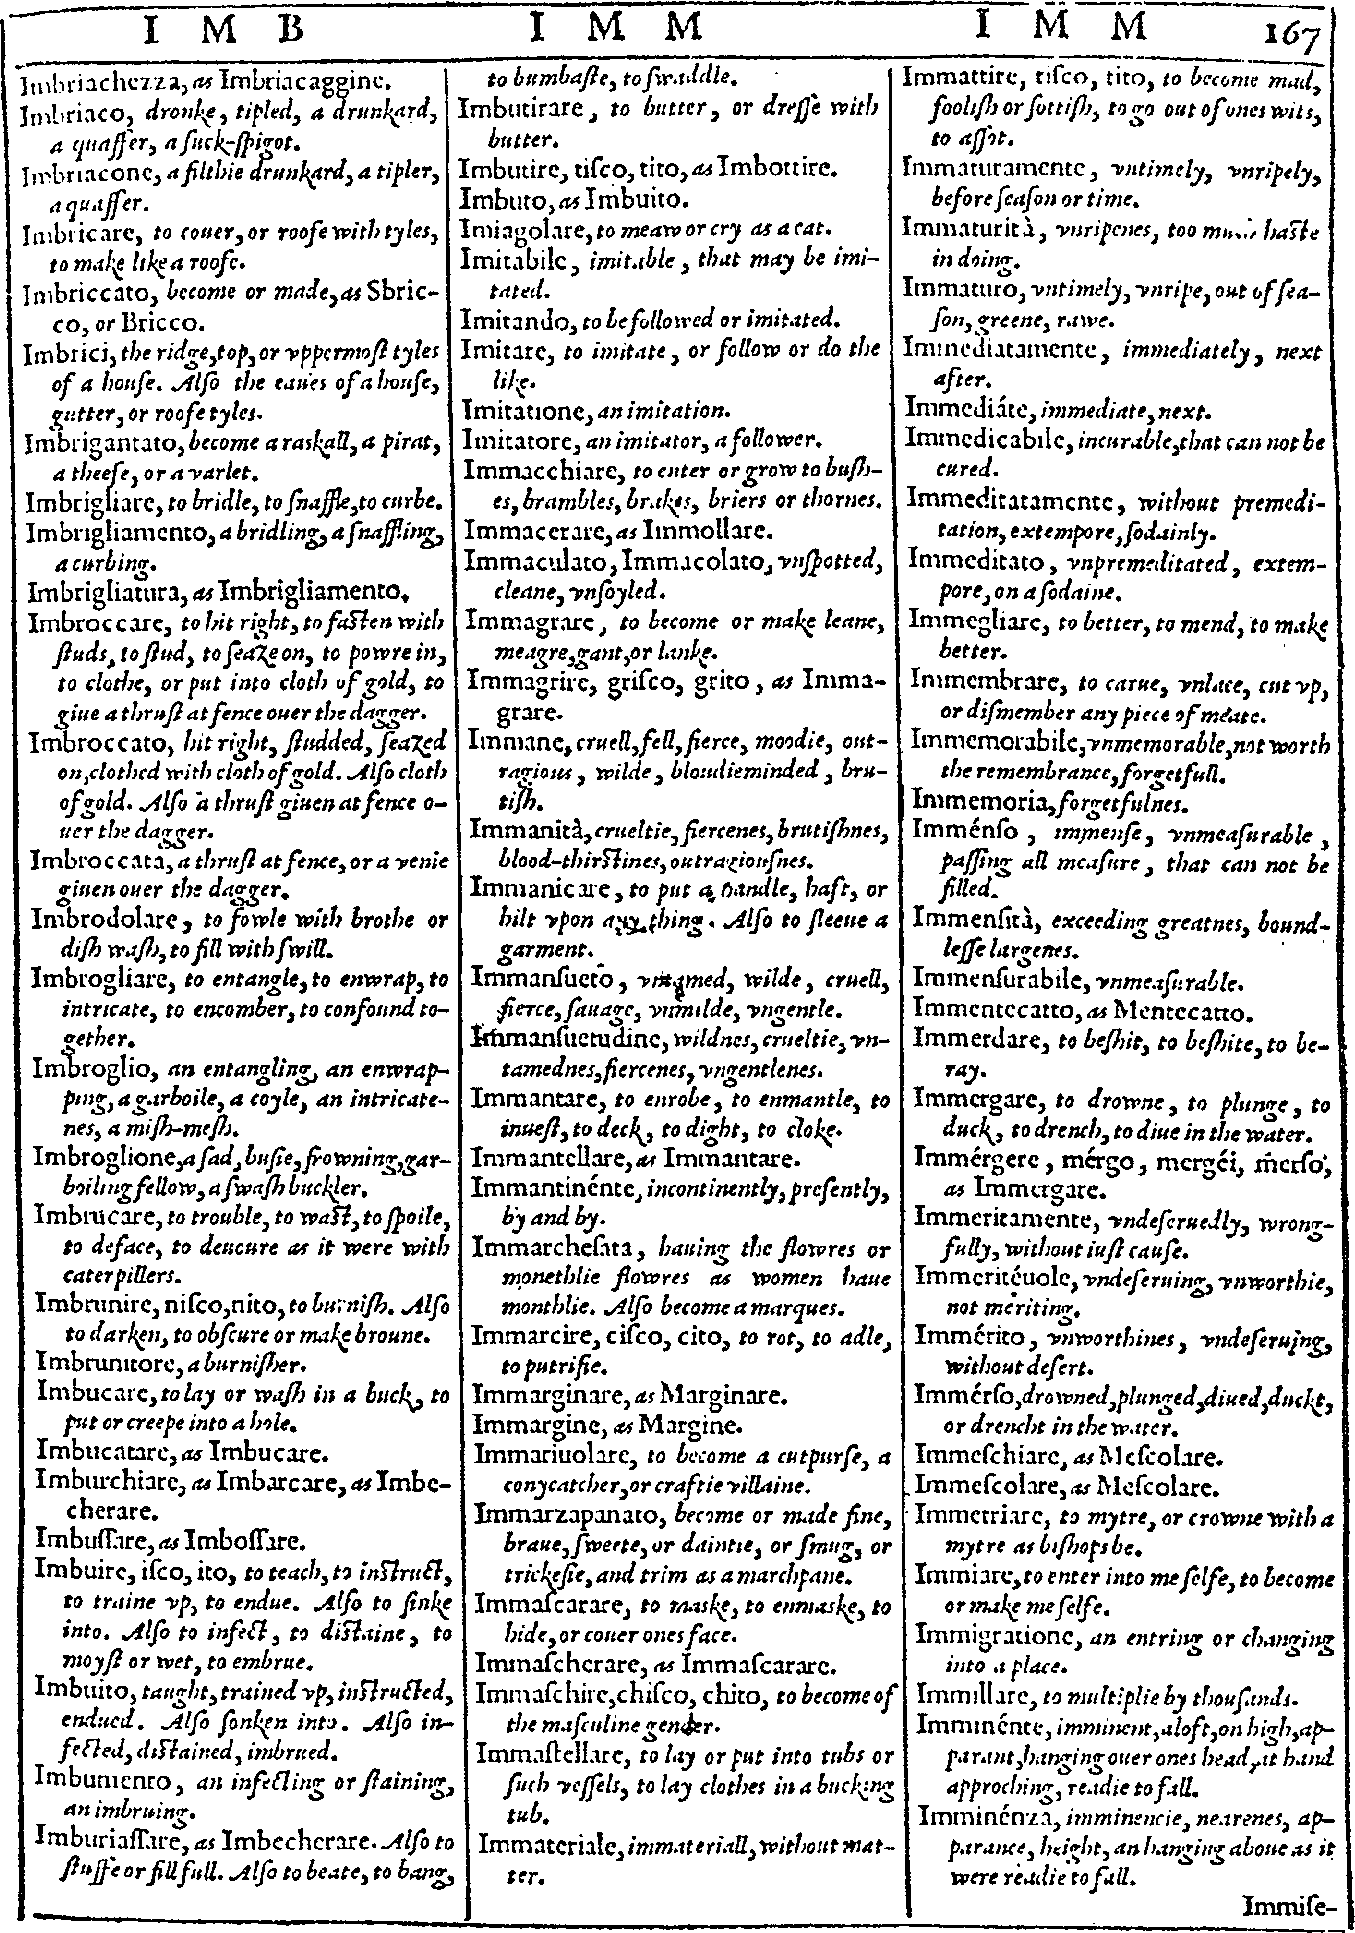 I M B
I M M
I M M
167
Imbriachezza, as Imbriacaggine.
Imbriaco, dronke, tipled, a drunkard,
a quaffer, a suck-spigot.
Imbriacone, a filthie drunkard, a tipler,
a quaffer.
Imbricare, to couer, or roofe with tyles,
to make like a roofe.
Imbriccato, become or made, as Sbric-
co, or Bricco.
Imbrici, the ridge, top, or vppermost tyles
of a house. Also the eaues of a house,
gutter, or roofe tyles.
Imbrigantato, become a raskall, a pirat,
a theefe, or a varlet.
Imbrigliare, to bridle, to snaffle, to curbe.
Imbrigliamento, a bridling, a snaffling,
a curbing.
Imbrigliatura, as Imbrigliamento.
Imbroccare, to hit right, to fasten with
studs, to stud, to seaze on, to powre in,
to clothe, or put into cloth of gold, to
giue a thrust at fence ouer the dagger.
Imbroccato, hit right, studded, seazed
on, clothed with cloth of gold. Also cloth
of gold. Also a thrust giuen at fence o-
uer the dagger.
Imbroccata, a thrust at fence, or a venie
giuen ouer the dagger.
Imbrodolare, to fowle with brothe or
dish wash, to fill with swill.
Imbrogliare, to entangle, to enwrap, to
intricate, to encomber, to confound to-
gether.
Imbroglio, an entangling, an enwrap-
ping, a garboile, a coyle, an intricate-
nes, a mish-mesh.
Imbroglione, a sad, busie, frowning, gar-
boiling fellow, a swash buckler.
Imbrucare, to trouble, to wast, to spoile,
to deface, to deuoure as it were with
caterpillers.
Imbrunire, nisco, nito, to burnish. Also
to darken, to obscure or make broune.
Imbrunitore, a burnisher.
Imbucare, to lay or wash in a buck, to
put or creepe into a hole.
Imbucatare, as Imbucare.
Imburchiare, as Imbarcare, as Imbe-
cherare.
Imbussare, as Imbossare.
Imbuire, isco, ito, to teach, to instruct,
to traine vp, to endue. Also to sinke
into. Also to infect, to distaine, to
moyst or wet, to embrue.
Imbuito, taught, trained vp, instructed,
endued. Also sonken into. Also in-
fected, distained, imbrued.
Imbumento, an infecting or staining,
an imbruing.
Imburiassare, as Imbecherare. Also to
stuffe or fill full. Also to beate, to bang,
to bumbaste, to swaddle.
Imbutirare, to butter, or dresse with
butter.
Imbutire, tisco, tito, as Imbottire.
Imbuto, as Imbuito.
Imiagolare, to meaw or cry as a cat.
Imitabile, imitable, that may be imi-
tated.
Imitando, to be followed or imitated.
Imitare, to imitate, or follow or do the
like.
Imitatione, an imitation.
Imitatore, an imitator, a follower.
Immacchiare, to enter or grow to bush-
es, brambles, brakes, briers or thornes.
Immacerare, as Immollare.
Immaculato, Immacolato, vnspotted,
cleane, vnsoyled.
Immagrare, to become or make leane,
meagre, gant, or lanke.
Immagrire, grisco, grito, as Imma-
grare.
Immane, cruell, fell, fierce, moodie, out-
ragious, wilde, bloudieminded, bru-
tish.
Immanità, crueltie, fiercenes, brutishnes,
blood-thirstines, outragiousnes.
Immanicare, to put a handle, haft, or
hilt vpon any thing. Also to sleeue a
garment.
Immansueto, vntamed, wilde, cruell,
fierce, sauage, vnmilde, vngentle.
Immansuetudine, wildnes, crueltie, vn-
tamednes, fiercenes, vngentlenes.
Immantare, to enrobe, to enmantle, to
inuest, to deck, to dight, to cloke.
Immantellare, as Immantare.
Immantinénte, incontinently, presently,
by and by.
Immarchesata, hauing the flowres or
monethlie flowres as women haue
monthlie. Also become a marques.
Immarcire, cisco, cito, to rot, to adle,
to putrifie.
Immarginare, as Marginare.
Immargine, as Margine.
Immariuolare, to become a cutpurse, a
conycatcher, or craftie villaine.
Immarzapanato, become or made fine,
braue, sweete, or daintie, or smug, or
trickesie, and trim as a marchpane.
Immascarare, to maske, to enmaske, to
hide, or couer ones face.
Immascherare, as Immascarare.
Immaschire, chisco, chito, to become of
the masculine gender.
Immastellare, to lay or put into tubs or
such vessels, to lay clothes in a bucking
tub.
Immateriale, immateriall, without mat-
ter.
Immattire, tisco, tito, to become mad,
foolish or sottish, to go out of ones wits,
to assot.
Immaturamente, vntimely, vnripely,
before season or time.
Immaturità, vnripenes, too much haste
in doing.
Immaturo, vntimely, vnripe, out of sea-
son, greene, rawe.
Immediatamente, immediately, next
after.
Immediáte, immediate, next.
Immedicabile, incurable, that can not be
cured.
Immeditatamente, without premedi-
tation, extempore, sodainly.
Immeditato, vnpremeditated, extem-
pore, on a sodaine.
Immegliare, to better, to mend, to make
better.
Immembrare, to carue, vnlace, cut vp,
or dismember any piece of meate.
Immemorabile, vnmemorable, not worth
the remembrance, forgetfull.
Immemoria, forgetfulnes.
Imménso, immense, vnmeasurable,
passing all measure, that can not be
filled.
Immensità, exceeding greatnes, bound-
lesse largenes.
Immensurabile, vnmeasurable.
Immentecatto, as Mentecatto.
Immerdare, to beshit, to beshite, to be-
ray.
Immergare, to drowne, to plunge, to
duck, to drench, to diue in the water.
Immérgere, mérgo, mergéi, mérso,
as Immergare.
Immeritamente, vndeseruedly, wrong-
fully, without iust cause.
Immeritéuole, vndeseruing, vnworthie,
not meriting.
Immérito, vnworthines, vndeseruing,
without desert.
Immérso, drowned, plunged, diued, duckt,
or drencht in the water.
Immeschiare, as Mescolare.
Immescolare, as Mescolare.
Immetriare, to mytre, or crowne with a
mytre as bishops be.
Immiare, to enter into me selfe, to become
or make me selfe.
Immigratione, an entring or changing
into a place.
Immillare, to multiplie by thousands.
Imminénte, imminent, aloft, on high, ap-
parant, hanging ouer ones head, at hand
approching, readie to fall.
Imminénza, imminencie, nearenes, ap-
parance, height, an hanging aboue as it
were readie to fall.
Immise-